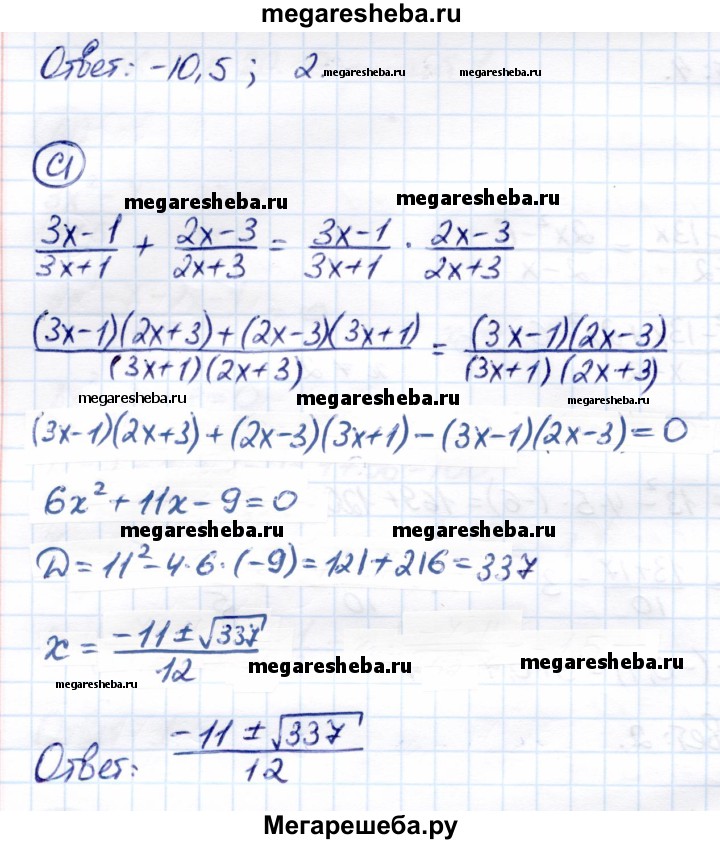 megaresheba.ru
Ответ: -10,5 ; 2. megaresheba.ru megaresheba.ru
С1
megaresheba.ru megaresheba.ru
(3x-1)/(3x+1) + (2x-3)/(2x+3) = (3x-1)/(3x+1) · (2x-3)/(2x+3)
((3x-1)(2x+3)+(2x-3)(3x+1))/((3x+1)(2x+3)) = ((3x-1)(2x-3))/((3x+1)(2x+3))
megaresheba.ru megaresheba.ru megaresheba.ru
(3x-1)(2x+3)+(2x-3)(3x+1)-(3x-1)(2x-3)=0
6x²+11x-9=0
megaresheba.ru megaresheba.ru
D=11²-4·6·(-9)=121+216=337
x = (-11±√337)/12
megaresheba.ru megaresheba.ru megaresheba.ru
Ответ: (-11±√337)/12
Мегарешеба.ру